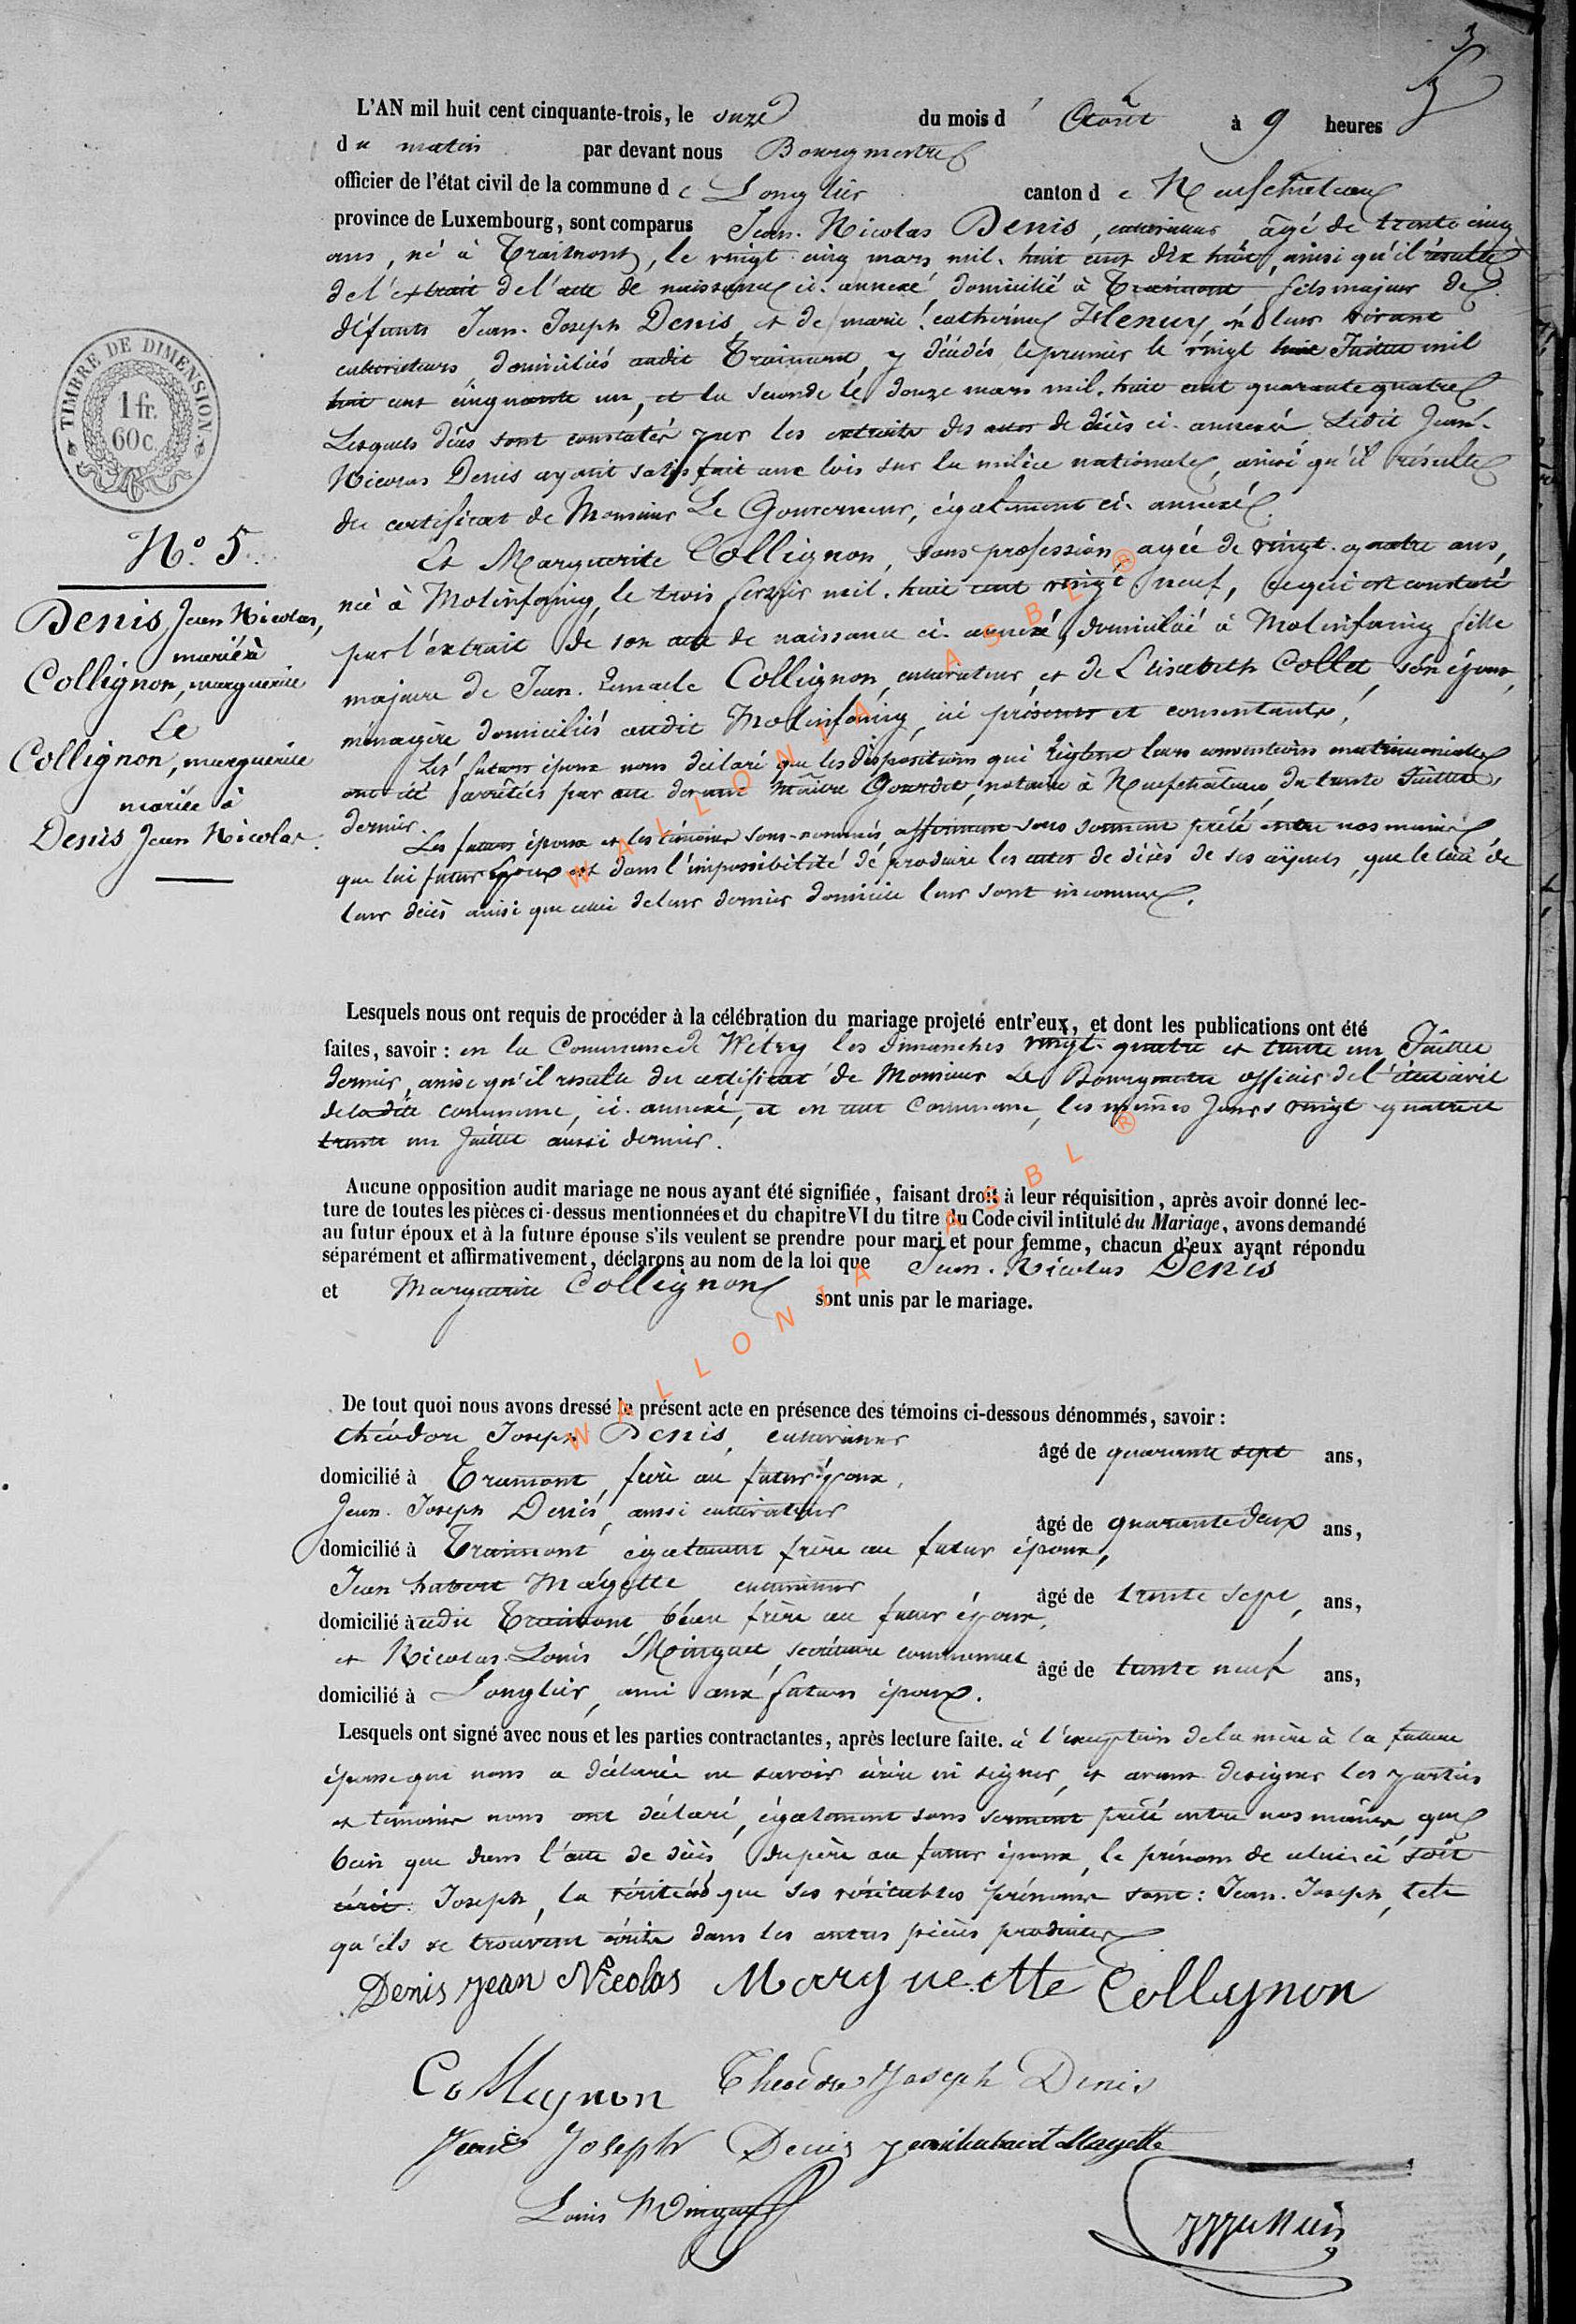 L'AN mil huit cent cinquante-trois, le onze du mois d' Août à 9 heures
du matin par devant nous Bourgmestre
officier de l'état civil de la commune de Longlier canton de Neufchateau
province de Luxembourg, sont comparus Jean-Nicolas Denis, cultivateur âgé de trente cinq
ans, né à Traimont, le vingt-cinq mars mil-huit cent dix huit, ainsi qu'il résulte
de l'extrait de l'acte de naissance ci-annexé domicilié à Traimont fils majeur de
défunts Jean-Joseph Denis, et de marie-catherine Henuy, en leur vivant
cultivateurs domiciliés audit Traimont, y décédés le premier le vingt huit Juillet mil
huit cent cinquante un, et la seconde le douze mars mil-huit cent quarante quatre
Lesquels décès sont constatés par les extraits des actes de décès ci-annexés. Ledit Jean-
Nicolas Denis ayant satisfait aux lois sur la milice nationale, ainsi qu'il résulte
du certificat de Monsieur Le Gouverneur, également ci-annexé.
Et Marguerite Collignon, sans profession, agée de vingt-quatre ans,
née à Molinfaing, le trois février mil-huit cent vingt neuf, ce qui est constaté
par l'extrait de son acte de naissance ci-annexé, domiciliée à Molinfaing fille
majeure de Jean-Remacle Collignon, cultivateur, et de Elisabeth Collet, son épouse,
ménagère domiciliés audit Molinfaing, ici présents et consentants.
Les futurs époux nous déclaré que les dispositions qui règlent leurs conventions matrimoniales
ont été arrêtées par acte devant Maître Gourdet, notaire à Neufchâteau, du trente Juillet
dernier.
Les futurs époux et les témoins sous-nommés, affirment sous serment prêté entre nos mains
que lui futur époux est dans l'impossibilité de produire les actes de décès de ses ayeuls, que le lieu de
leur décès ainsi que celui de leur dernier domicile leur sont inconnus.
TIMBRE DE DIMENSION
1 fr.
60 c.
N.° 5.
Denis, Jean Nicolas,
marié à
Collignon, marguerite
Le
Collignon, marguerite
mariée à
Denis Jean Nicolas.
Lesquels nous ont requis de procéder à la célébration du mariage projeté entr'eux, et dont les publications ont été
faites, savoir : en la Commune de Witry les dimanches vingt-quatre et trente un Juillet
dernier, ainsi qu'il résulte du certificat de Monsieur Le Bourgmestre officier de l'état civil
de ladite commune, ci-annexé, et en cette Commune, les mêmes jours vingt quatre et
trente un Juillet aussi dernier.
Aucune opposition audit mariage ne nous ayant été signifiée, faisant droit à leur réquisition, après avoir donné lec-
ture de toutes les pièces ci-dessus mentionnées et du chapitre VI du titre du Code civil intitulé du Mariage, avons demandé
au futur époux et à la future épouse s'ils veulent se prendre pour mari et pour femme, chacun d'eux ayant répondu
séparément et affirmativement, déclarons au nom de la loi que Jean-Nicolas Denis
et Marguerite Collignon sont unis par le mariage.
De tout quoi nous avons dressé le présent acte en présence des témoins ci-dessous dénommés, savoir :
théodore Joseph Denis, cultivateur âgé de quarante sept ans,
domicilié à Traimont, frère au futur époux,
Jean-Joseph Denis, aussi cultivateur âgé de quarante deux ans,
domicilié à Traimont également frère au futur époux,
Jean hubert Magette cultivateur âgé de trente sept, ans,
domicilié audit Traimont beau frère au futur époux,
et Nicolas-Louis Minguet, secrétaire communal âgé de trente neuf ans,
domicilié à Longlier, ami aux futurs époux.
Lesquels ont signé avec nous et les parties contractantes, après lecture faite. à l'exception de la mère à la future
épouse qui nous a déclaré ne savoir écrire ni signer, et avant de signer les parties
et témoins nous ont déclaré, également sous serment prêté entre nos mains, que
bien que dans l'acte de décès du père au futur époux, le prénom de celui-ci soit
écrit: Joseph, la vérité est que ses véritables prénoms sont: Jean-Joseph, tels
qu'ils se trouvent écrits dans les autres pièces produites
Denis jean Nicolas Marguerette Collignon
Collignon Théodore Joseph Denis
Jean Joseph Denis jean hubert Magette
Louis Minguet
WALLONIA ASBL ®
WALLONIA ASBL ®